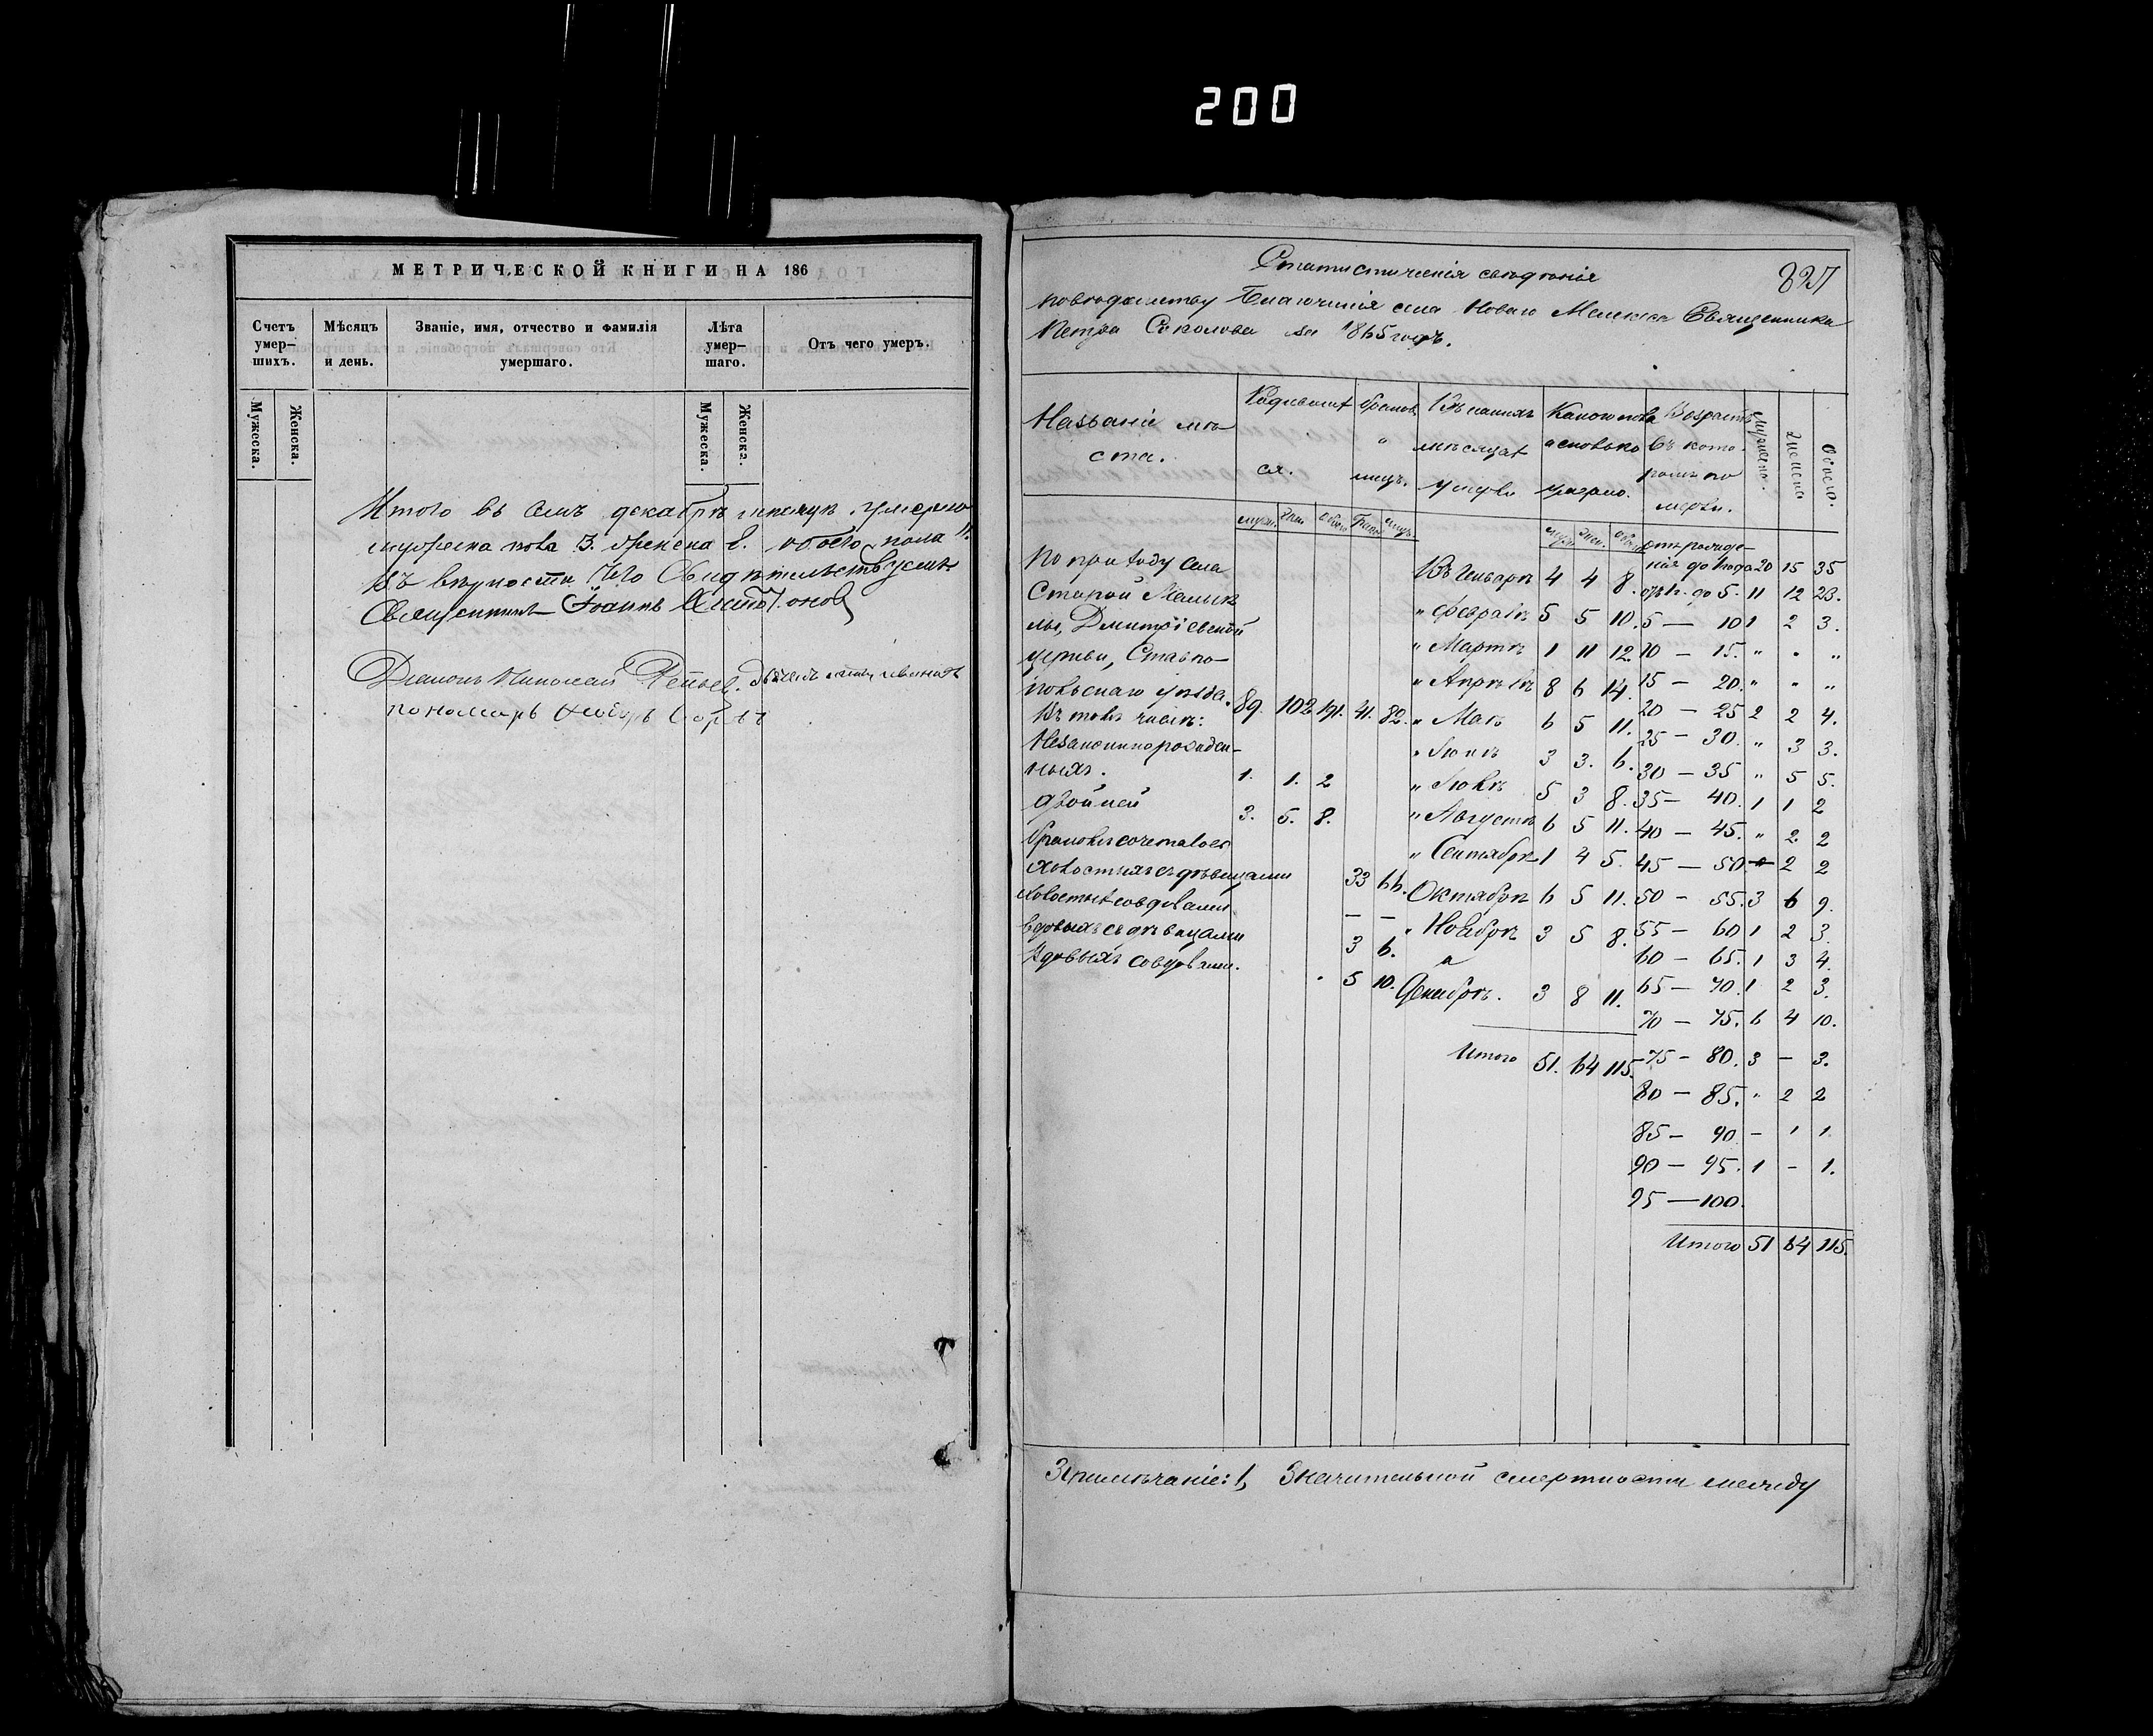 200
МЕТРИЧЕСКОЙ КНИГИ НА 186
Счетъ умерших. Мѣсяцъ и день. Званіе, имя, отчество и фамилія умершаго. Лѣта умершаго. Отъ чего умеръ.
Мужеска. Женска. Мужеска. Женска.
Итого въ семъ декабрѣ мѣсяцѣ умерло
мужеска пола 3. женска 8. обоего пола 11.
Въ вѣрности чего свидѣтельствуемъ
Священникъ Іоаннъ
Діаконъ Николай
пономарь
827
Статистическія свѣдѣнія
по вѣдомству Благочинія села Новаго Священника
Петра Соколова за 1865 годъ.
Названіе мѣста. Родившихся. Браков. лицъ. Въ какихъ мѣсяцахъ умерли Какого пола и сколько умерло. Возрастъ въ которомъ померли. Мужеска. Женска. Обоего.
По приходу села
Старой
лы, Дмитріевской
церкви, Ставро-
польскаго уѣзда. 89. 102 191. 41. 82.
Въ томъ числѣ:
Незаконнорожден-
ныхъ. 1. 1. 2
Двойней 3. 5. 8.
Браковъ сочеталось
холостыхъ съ дѣвицами 33 66.
холостыхъ со вдовами — —
вдовыхъ съ дѣвицами 3 6.
вдовыхъ со вдовами. 5 10.
Въ Генварѣ 4 4 8.
" Февралѣ 5 5 10.
" Мартѣ 1 11 12.
" Апрѣлѣ 8 6 14.
" Маѣ 6 5 11.
" Іюнѣ 3 3. 6.
" Іюлѣ 5 3 8.
" Августѣ 6 5 11.
" Сентябрѣ 1 4 5.
Октябрѣ 6 5 11.
" Ноябрѣ 3 5 8.
Декабрѣ. 3 8 11.
Итого 51. 64 115.
отъ рожде-
нія до года 20 15 35
отъ 1. до 5. 11 12 23.
5 — 10 1 2 3.
10 — 15. " " "
15 — 20. " " "
20 — 25 2 2 4.
25 — 30. " 3 3.
30 — 35 " 5 5.
35 — 40. 1 1 2
40 — 45. " 2 2
45 — 50. — 2 2
50 — 55. 3 6 9.
55 — 60 1 2 3.
60 — 65. 1 3 4.
65 — 70. 1 2 3.
70 — 75. 6 4 10.
75 — 80. 3 — 3.
80 — 85. " 2 2
85 — 90 — 1 1.
90 — 95. 1 — 1.
95 — 100.
Итого 51 64 115.
Примѣчаніе: 1, Значительной смертности между